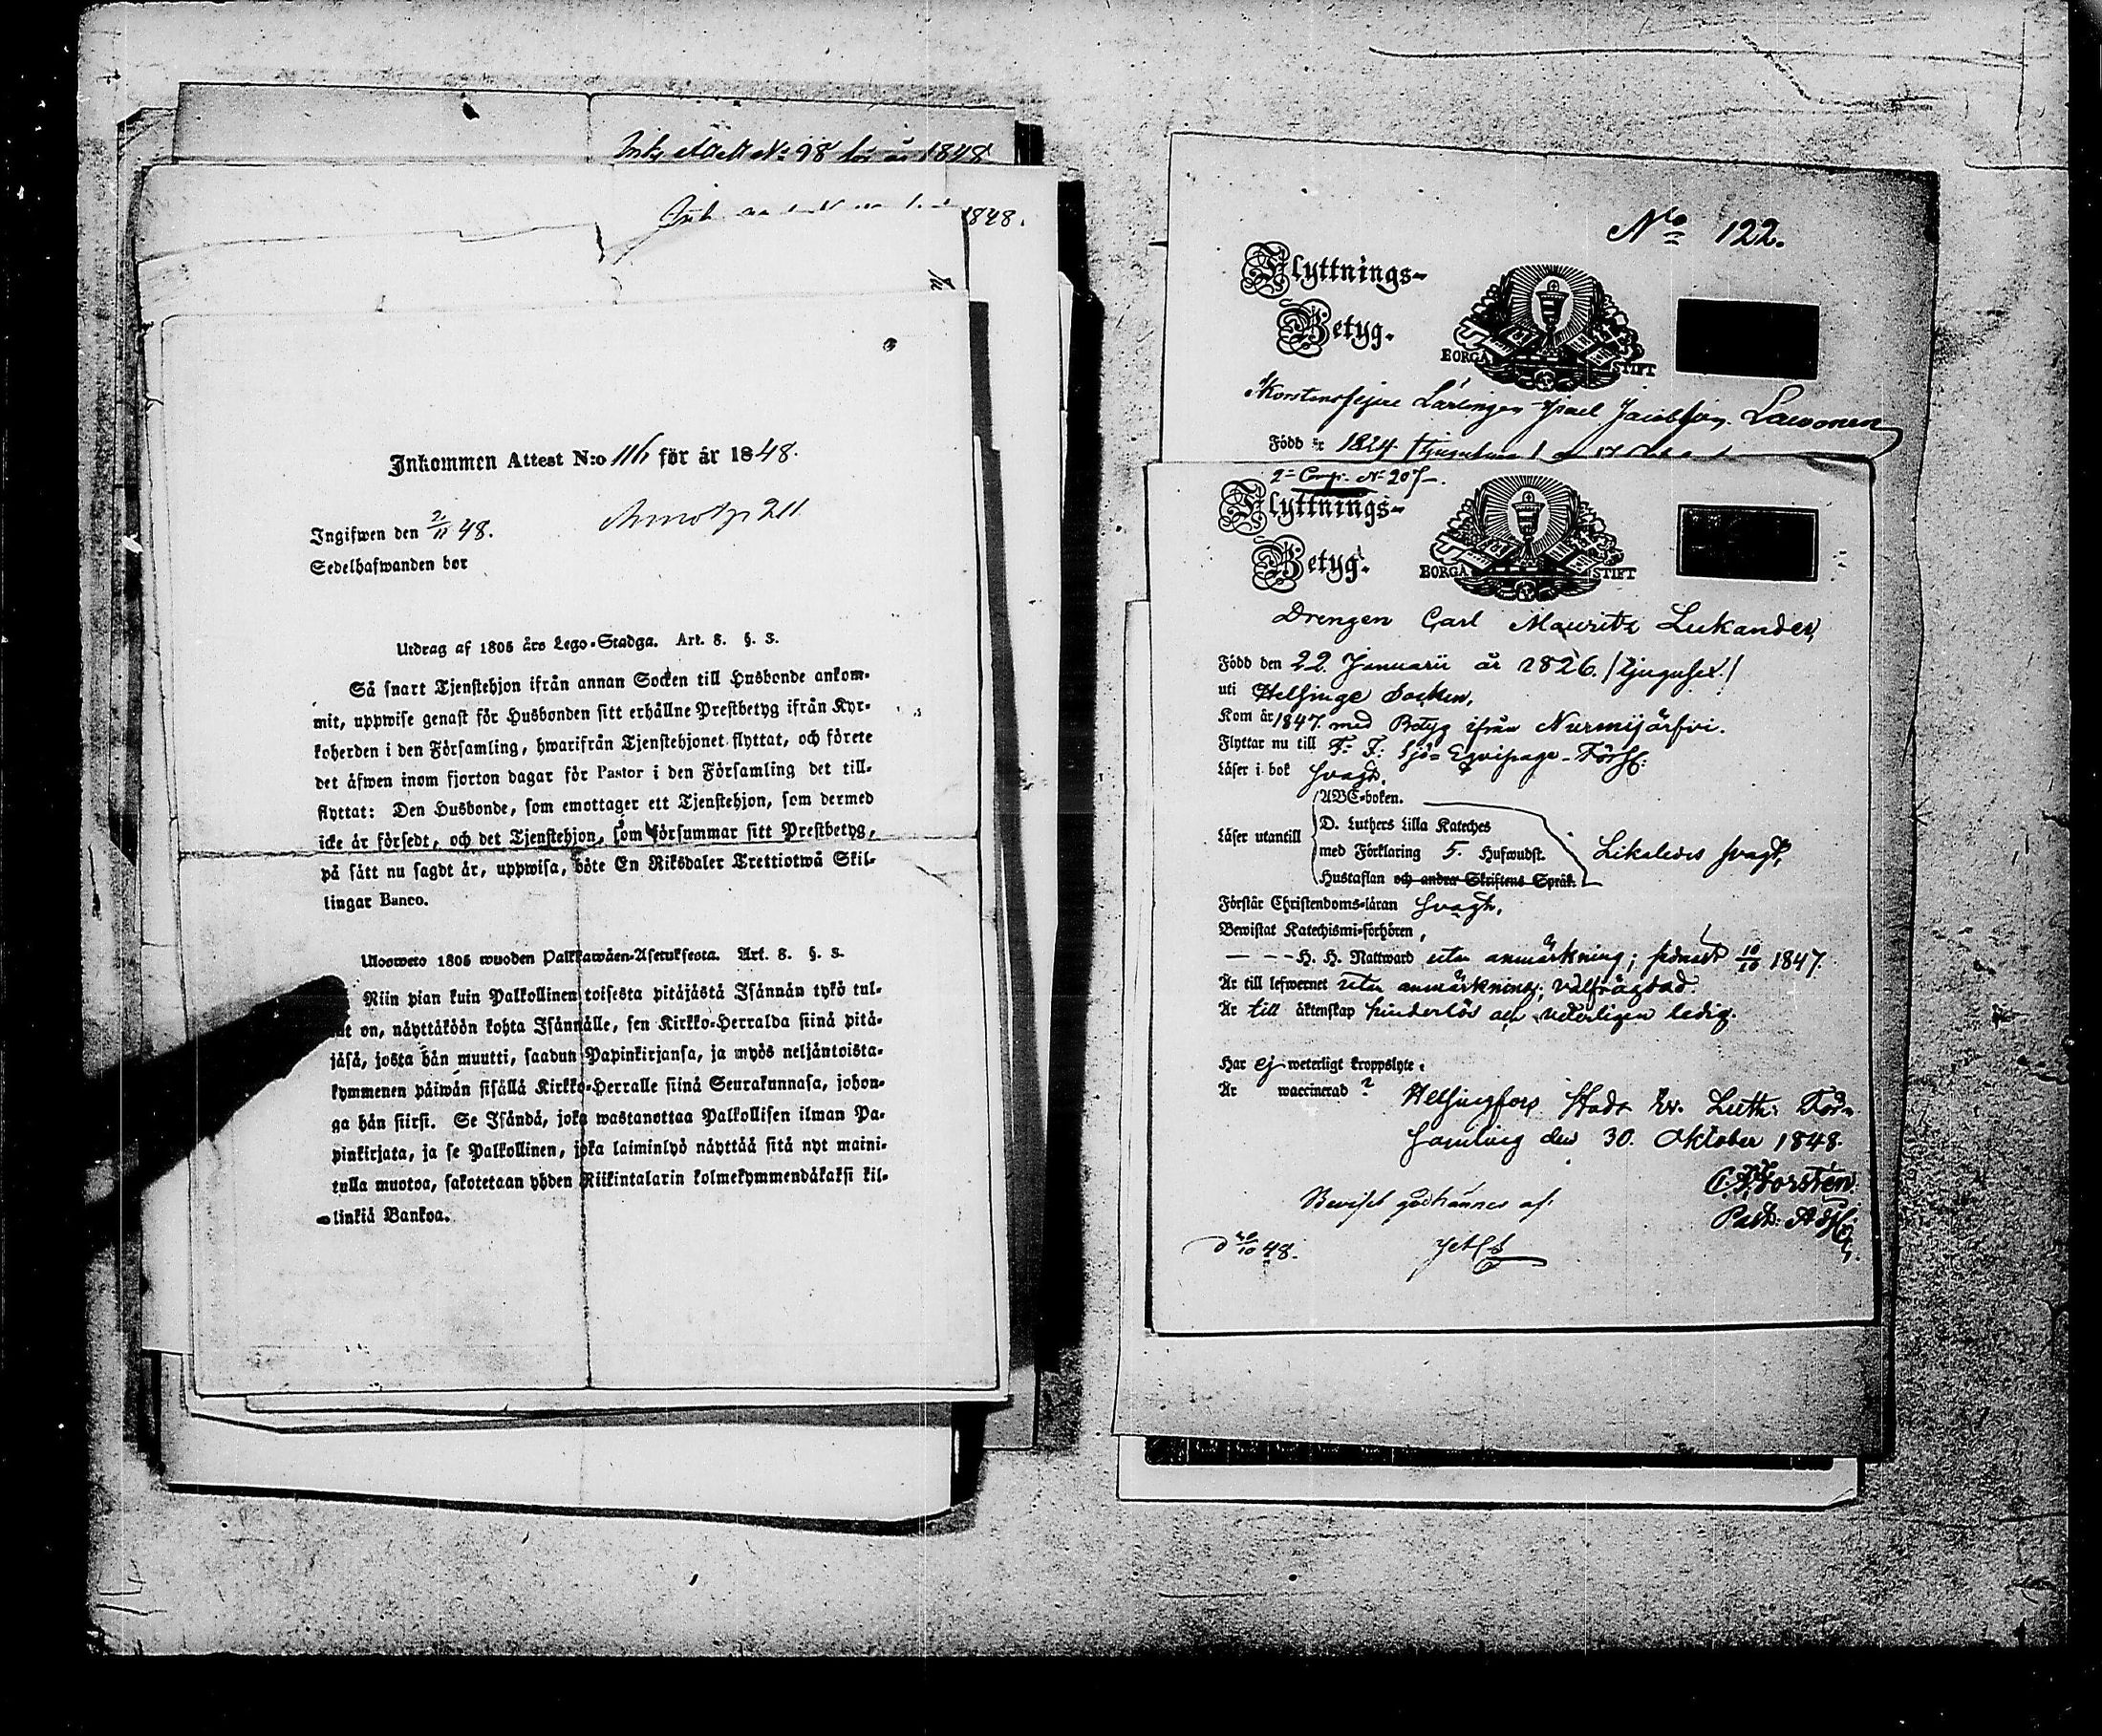 Ink. Attest No 98 för år 1848
1848.
Inkommen Attest N:o 116 för år 1848.
Ingifwen den 2/11 48.
Sedelhafwanden bor
Utdrag af 1805 års Lego-Stadga. Art. 8. §. 3.
Så snart Tjenstehjon ifrån annan Socken till Husbonde ankom-
mit, uppwise genast för Husbonden sitt erhållne Prestbetyg ifrån Kyr-
koherden i den Församling, hwarifrån Tjenstehjonet flyttat, och förete
det äfwen inom fjorton dagar för Pastor i den Församling det till-
flyttat: Den Husbonde, som emottager ett Tjenstehjon, som dermed
icke är försedt, och det Tjenstehjon, som försummar sitt Prestbetyg,
på sätt nu sagdt är, uppwisa, böte En Riksdaler Trettiotwå Skil-
lingar Banco.
Ulosweto 1805 wuoden Palkkawäen-Asetuksesta. Art. 8. §. 3.
Niin pian kuin Palkollinen toisesta pitäjästä Isännän tykö tul-
lut on, näyttäköön kohta Isännälle, sen Kirkko-Herralda siinä pitä-
jäsä, josta hän muutti, saadun Papinkirjansa, ja myös neljäntoista-
kymmenen päiwän sisällä Kirkko-Herralle siinä Seurakunnasa, johon-
ga hän siirsi. Se Isändä, joka wastanottaa Palkollisen ilman Pa-
pinkirjata, ja se Palkollinen, joka laiminlyö näyttää sitä nyt maini-
tulla muotoa, sakotetaan yhden Riikintalarin kolmekymmendäkaksi kil-
linkiä Bankoa.
No 122.
Flyttnings-
Betyg.
BORGÅ STIFT
Korstensfejare Lärlingen Israel Jacobsson Lawonen
Född år 1824
2= Comp. No 207-.
Flyttnings-
Betyg.
BORGÅ STIFT
Drengen Carl Mauritz Lukander,
Född den 22 Januarii år 1826. /tjugusex./
uti Helsinge Socken,
Kom år 1847 med Betyg ifrån Nurmijärfvi.
Flyttar nu till F: F: Sjö-Eqvipage-Förs:
Läser i bok svagt,
Läser utantill
ABC-boken.
D. Luthers Lilla Kateches
med Förklaring 5. Hufwudst.
Hustaflan och andra Skriftens Språk.
Likaledes svagt,
Förstår Christendoms-läran svagt,
Bewistat Katechismi-förhören,
— - - H. H. Nattward utan anmärkning; sednast 10/10 1847.
Är till lefwernet utan anmärkning; välfrägdad
Är till äktenskap hinderlös och veterligen ledig.
Har ej weterligt kroppslyte.
Är waccinerad ?
Helsingfors Stads Ev. Luth: För-
samling den 30. Oktober 1848.
C. F. Forstén.
Past. Adj:
Beviset godkännes af:
d 30/10 48.